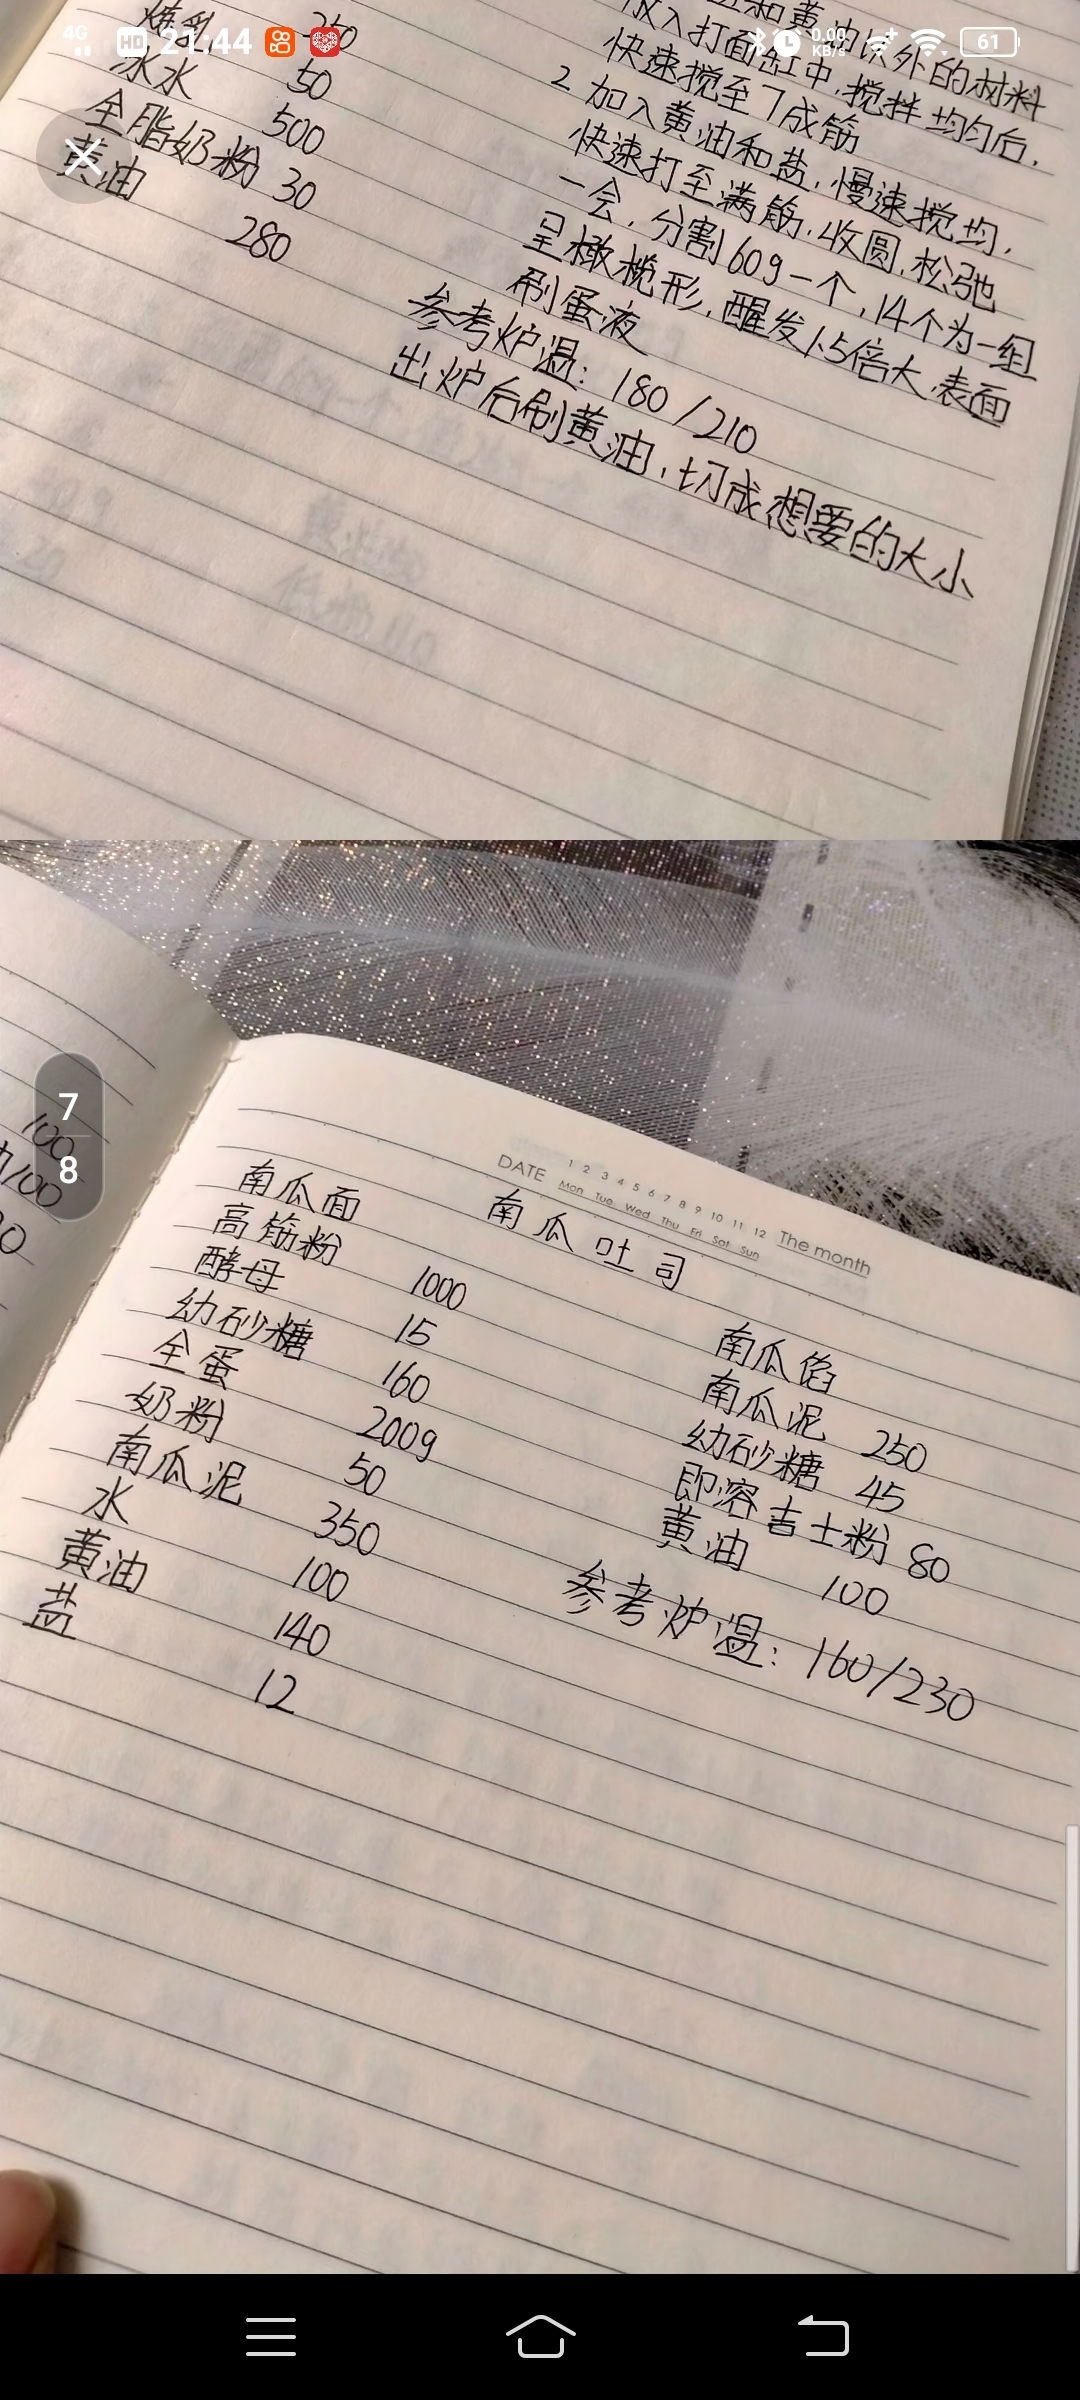 4G HD 21:44 0.00 KB/s 61
炼乳
冰水 50
全脂奶粉 500
黄油 30
280
放入打面缸中,搅拌均匀后,
快速搅至7成筋
2 加入黄油和盐,慢速搅均,
快速打至满筋,收圆,松弛
一会,分割60g一个,14个为一组
呈橄榄形,醒发1.5倍大,表面
刷蛋液
参考炉温: 180/210
出炉后刷黄油,切成想要的大小
7
8
100
/100
DATE 1 2 3 4 5 6 7 8 9 10 11 12 The month
Mon Tue Wed Thu Fri Sat Sun
南瓜吐司
南瓜面
高筋粉 1000
酵母 15
幼砂糖 160
全蛋 200g
奶粉 50
南瓜泥 350
水 100
黄油 140
盐 12
南瓜馅
南瓜泥 250
幼砂糖 45
即溶吉士粉 80
黄油 100
参考炉温: 160/230